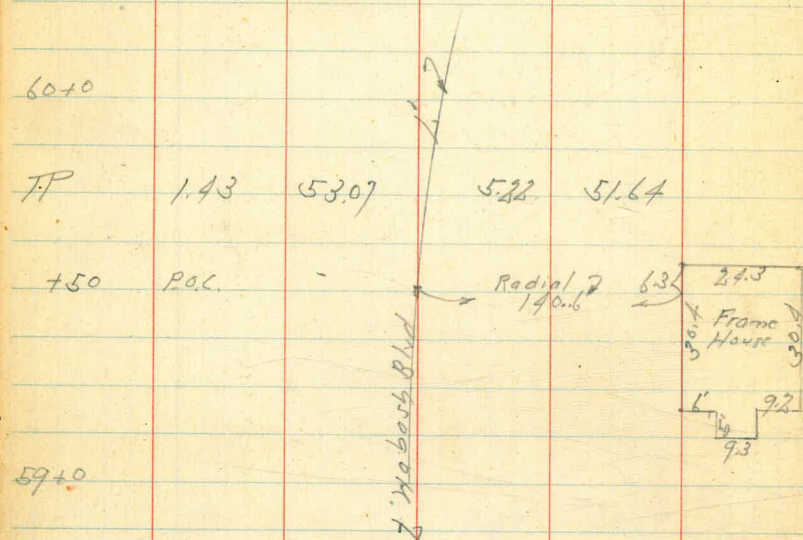 60+0
T.P 1.43 53.07 5.22 51.64
+50 P.O.C. Radial 140.6 24.3
30.4 Frame House 30.4
6' 9.2
5'
9.3
Wabash Blvd
59+0